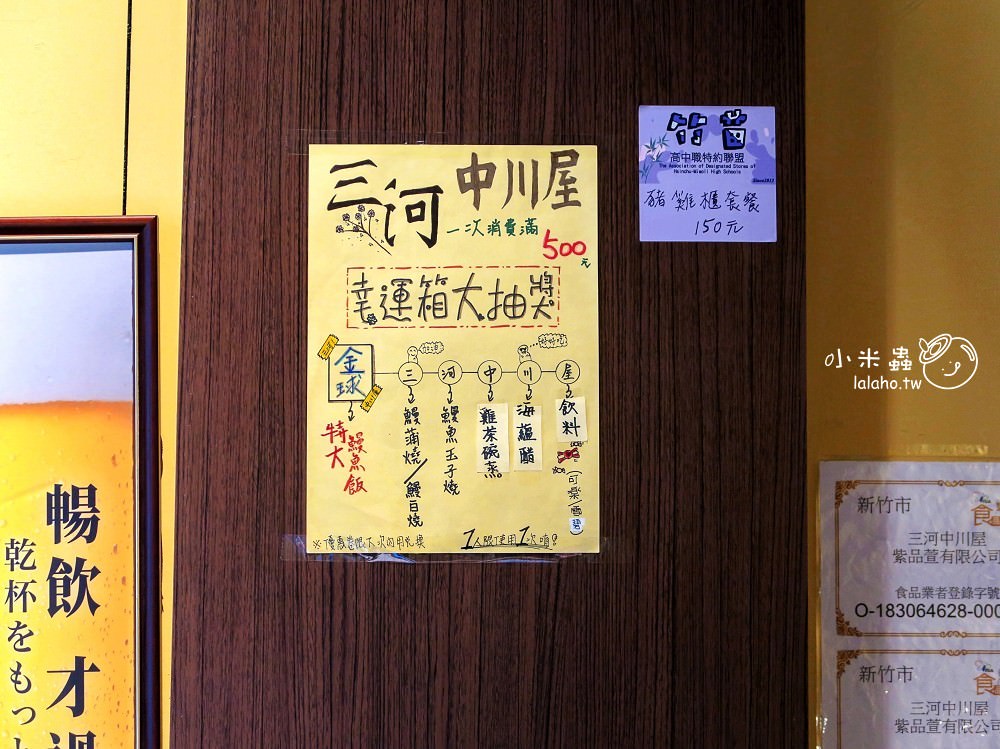 三河 中川屋
一次消費滿 500元
幸運箱大抽獎
金球
三 河 中 川 屋
特大
鰻魚飯
鰻蒲燒/鰻白燒
鰻魚玉子燒
雞茶碗蒸
海蘊醋
飲料
(可樂/雪碧)
1人限使用1次唷!
竹苗
高中職特約聯盟
The Association of Designated Stores of
Hsinchu-Miaoli High Schools
Since2017
豬雞櫃套餐
150元
小米蟲
lalaho.tw
暢飲 才過
乾杯をもっ
新竹市
食
三河中川屋
紫品萱有限公司
食品業者登錄字號
O-183064628-000
新竹市
食
三河中川屋
紫品萱有限公司